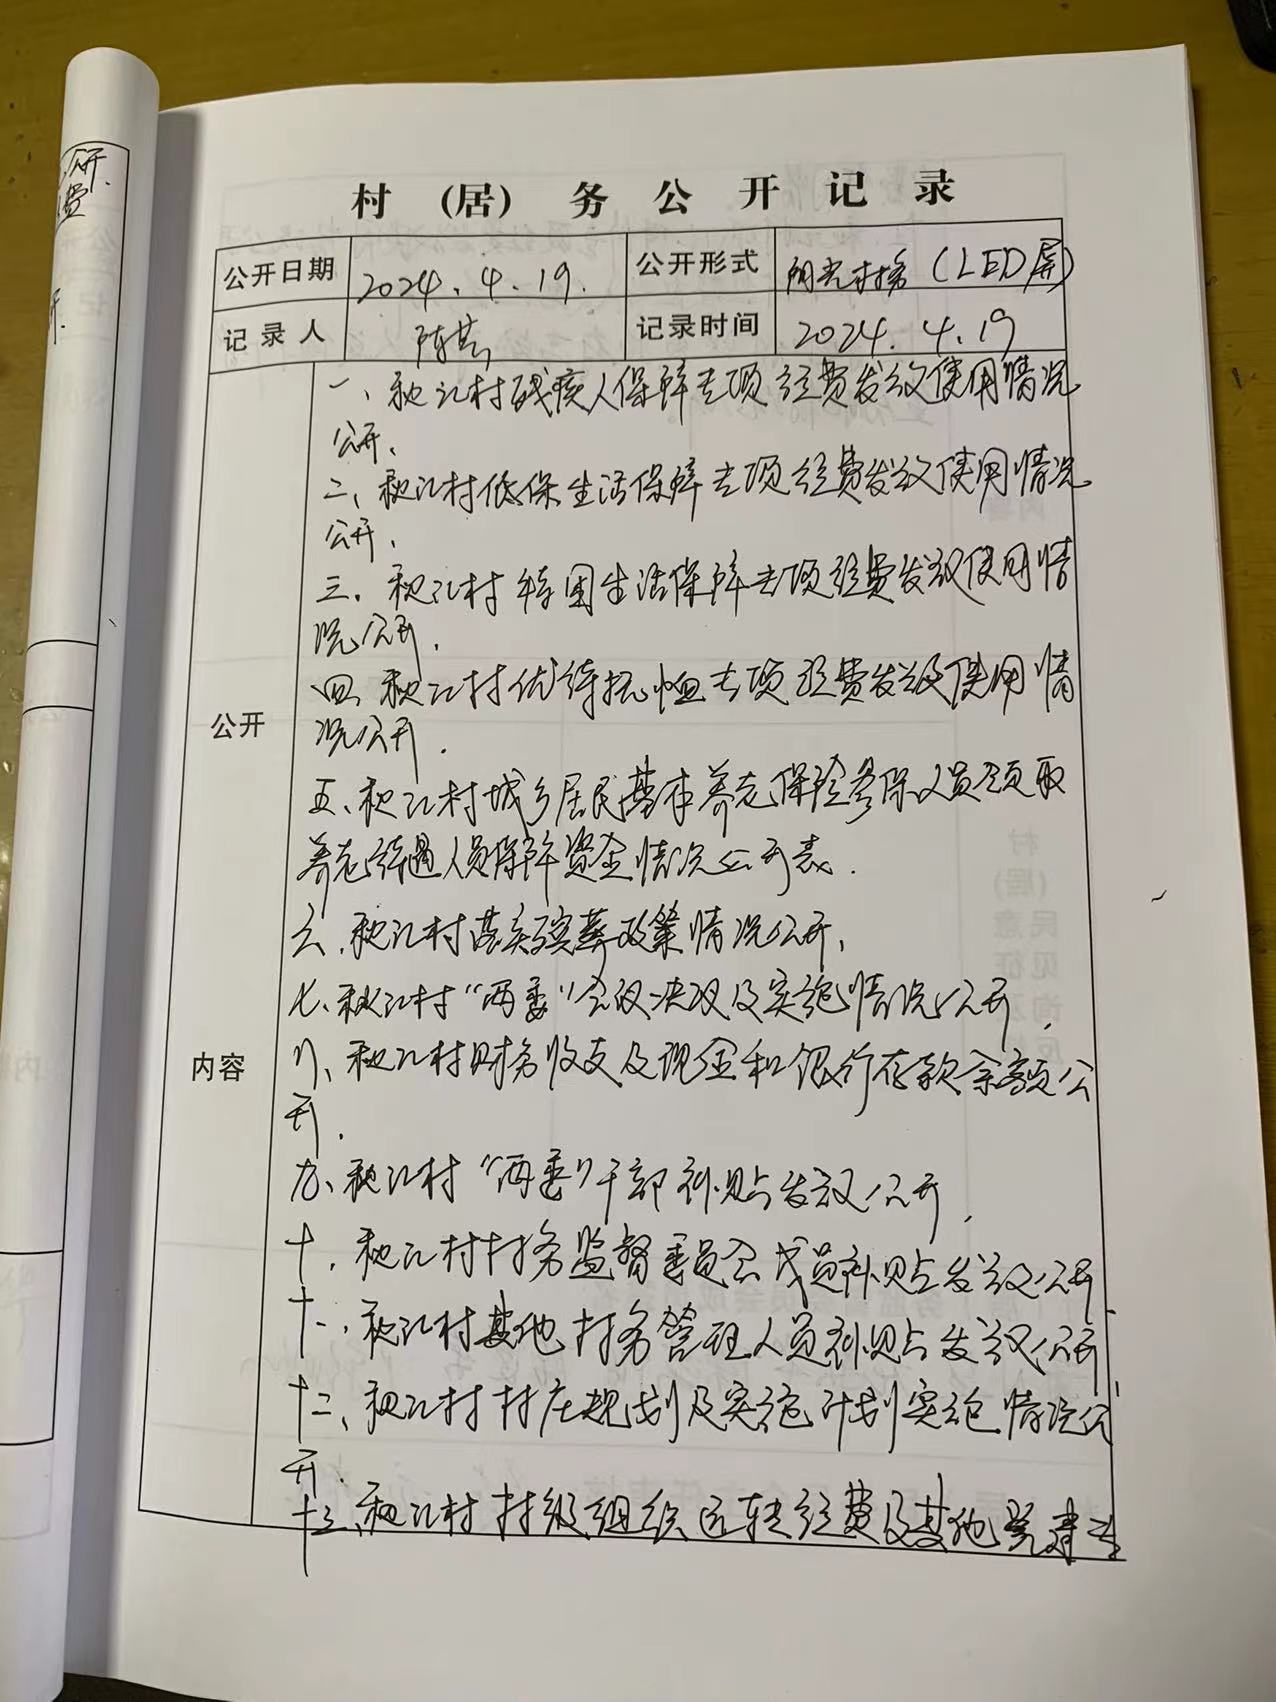 村（居）务公开记录
公开日期 2024.4.19. 公开形式 阳光村务（LED屏）
记录人 记录时间 2024.4.19
公开
内容
一、秋江村残疾人保障专项经费发放使用情况
公开.
二、秋江村低保生活保障专项经费发放使用情况
公开.
三、秋江村特困生活保障专项经费发放使用情
况公开.
四、秋江村优待抚恤专项经费发放及使用情
况公开.
五、秋江村城乡居民基本养老保险参保人员领取
养老待遇人员保障资金情况公开表.
六、秋江村落实殡葬政策情况公开.
七、秋江村“两委”会议决议及实施情况公开.
八、秋江村财务收支及现金和银行存款余额公
开.
九、秋江村“两委”干部补贴发放公开.
十、秋江村村务监督委员会成员补贴发放公开
十一、秋江村其他村务管理人员补贴发放公开
十二、秋江村村庄规划及实施计划实施情况公
开.
十三、秋江村村级组织运转经费及其他党建专